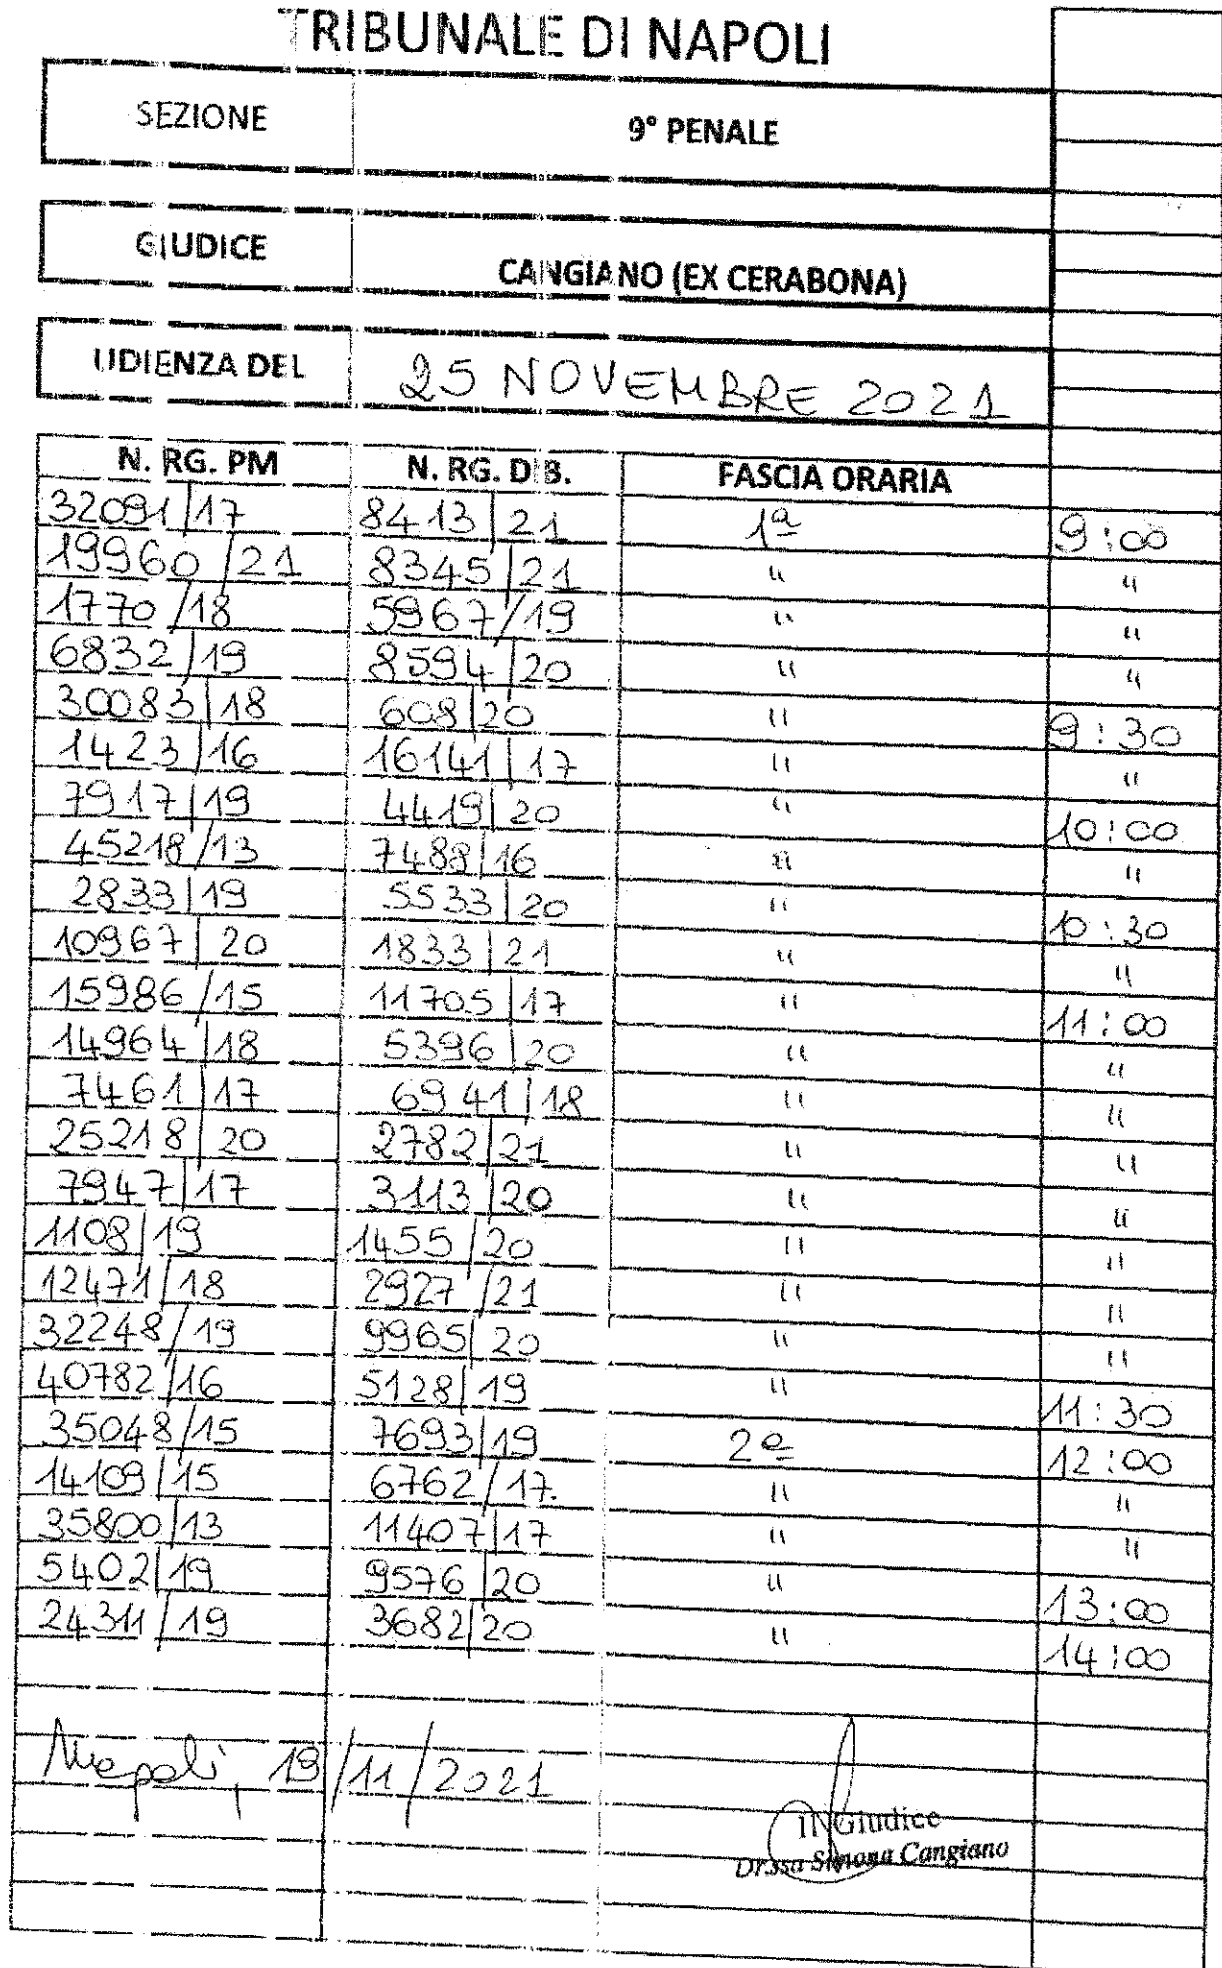 TRIBUNALE DI NAPOLI
SEZIONE 9° PENALE
GIUDICE CANGIANO (EX CERABONA)
UDIENZA DEL 25 NOVEMBRE 2021
N. RG. PM N. RG. DIB. FASCIA ORARIA
32091/17 8413/21 1ª 9:00
19960/21 8345/21 " "
1770/18 5967/19 " "
6832/19 8594/20 " "
30083/18 608/20 " 9:30
1423/16 16141/17 " "
7917/19 4419/20 " 10:00
45218/13 7488/16 " "
2833/19 5533/20 " 10:30
10967/20 1833/21 " "
15986/15 11705/17 " 11:00
14964/18 5396/20 " "
7461/17 6941/18 " "
25218/20 2782/21 " "
7947/17 3113/20 " "
1108/19 1455/20 " "
12471/18 2927/21 " "
32248/19 9965/20 " "
40782/16 5128/19 " 11:30
35048/15 7693/19 2ª 12:00
14109/15 6762/17. " "
35800/13 11407/17 " "
5402/19 9576/20 " 13:00
24311/19 3682/20 " 14:00
Napoli, 19/11/2021
Il Giudice
Dr.ssa Simona Cangiano